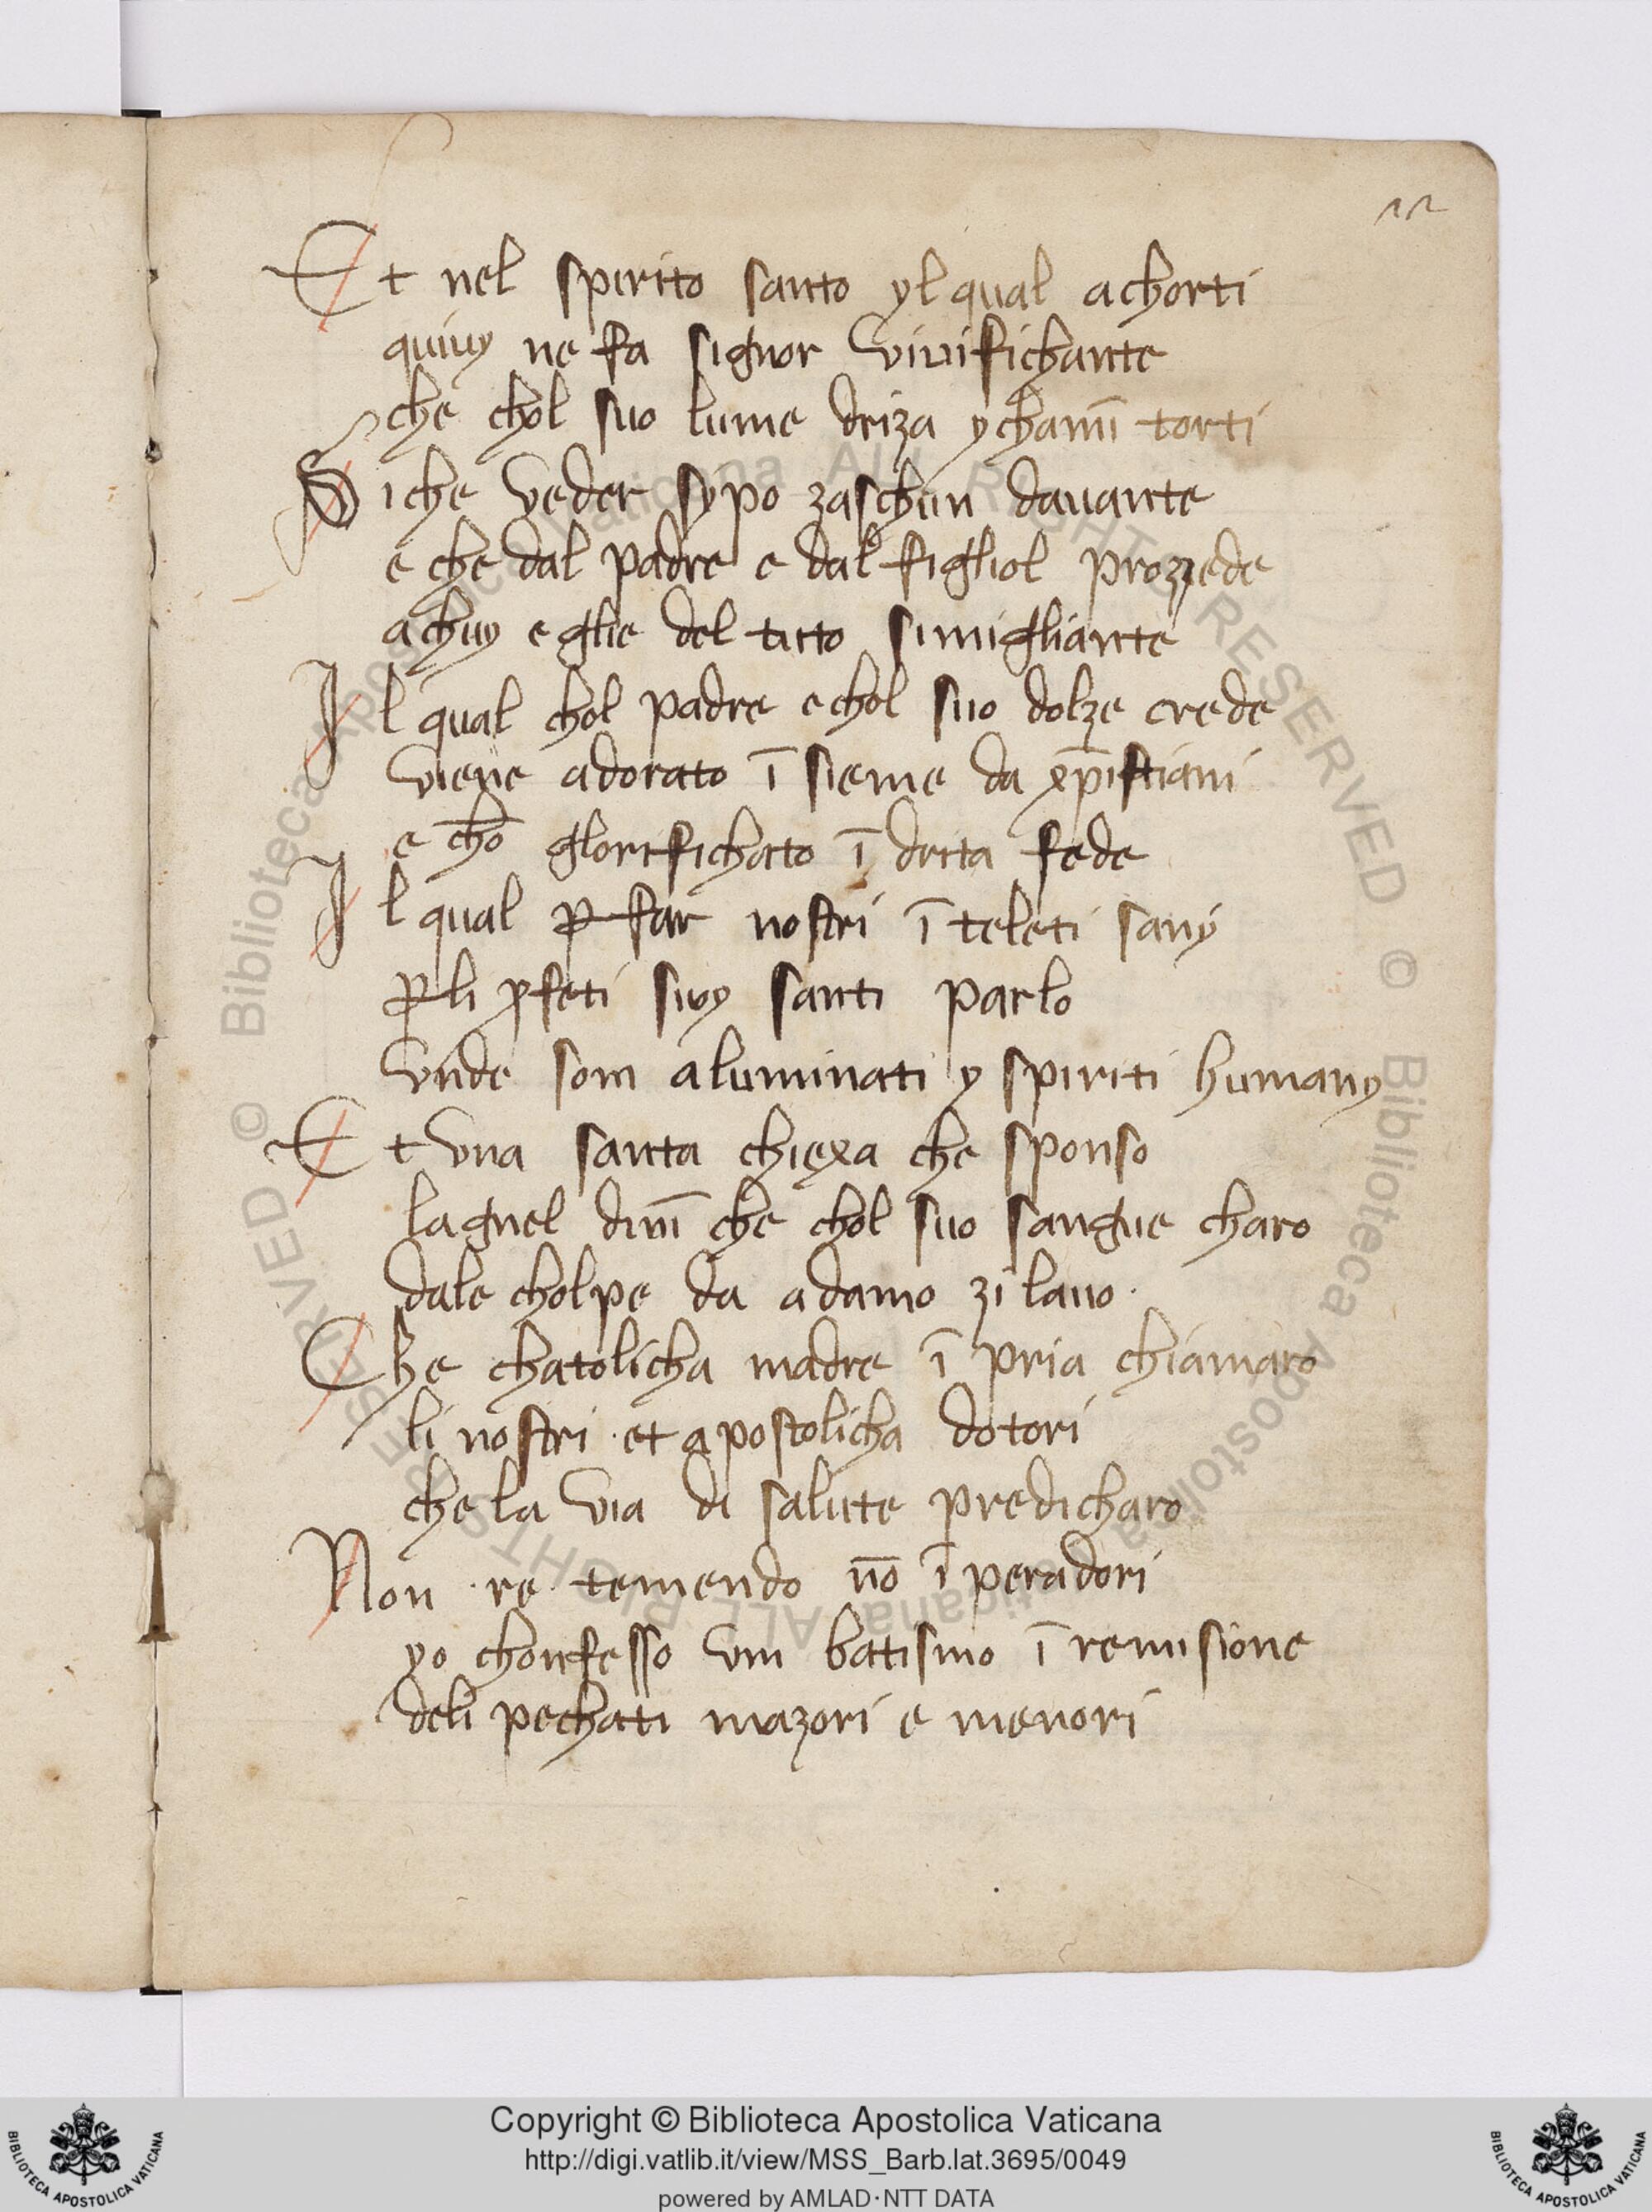 22
Et nel spirito santo yl qual achorti
quiuy ne fa signor viuifichante
che chol suo lume driza y chamī torti
Siche veder sypo zaschun dauante
e che dal padre e dal figliol prozzede
achuy e glie del tutto simigliante
Il qual chol padre e chol suo dolze crede
viene adorato ī sieme da xp̄istiani
e chō glorifichato ī drita fede
Il qual ꝑ far nostri ī teleti sany
ꝑ li ꝓfeti suoy santi parlo
vnde som aluminati y spiriti humany
Et vna santa chiexa che sponso
lagnel diuī che chol suo sangue charo
dale cholpe da adamo zi lauo.
Che chatolicha madre ī pria chiamaro
li nostri · et apostolicha dotori
che la via di salute predicharo
Non · re · temendo nō ī peradori
yo chonfesso vm batismo ī remisione
deli pechati mazori e menori
© Biblioteca Apostolica Vaticana ALL RIGHTS RESERVED
© Biblioteca Apostolica Vaticana ALL RIGHTS RESERVED
Copyright © Biblioteca Apostolica Vaticana
http://digi.vatlib.it/view/MSS_Barb.lat.3695/0049
powered by AMLAD·NTT DATA
BIBLIOTECA APOSTOLICA VATICANA
BIBLIOTECA APOSTOLICA VATICANA